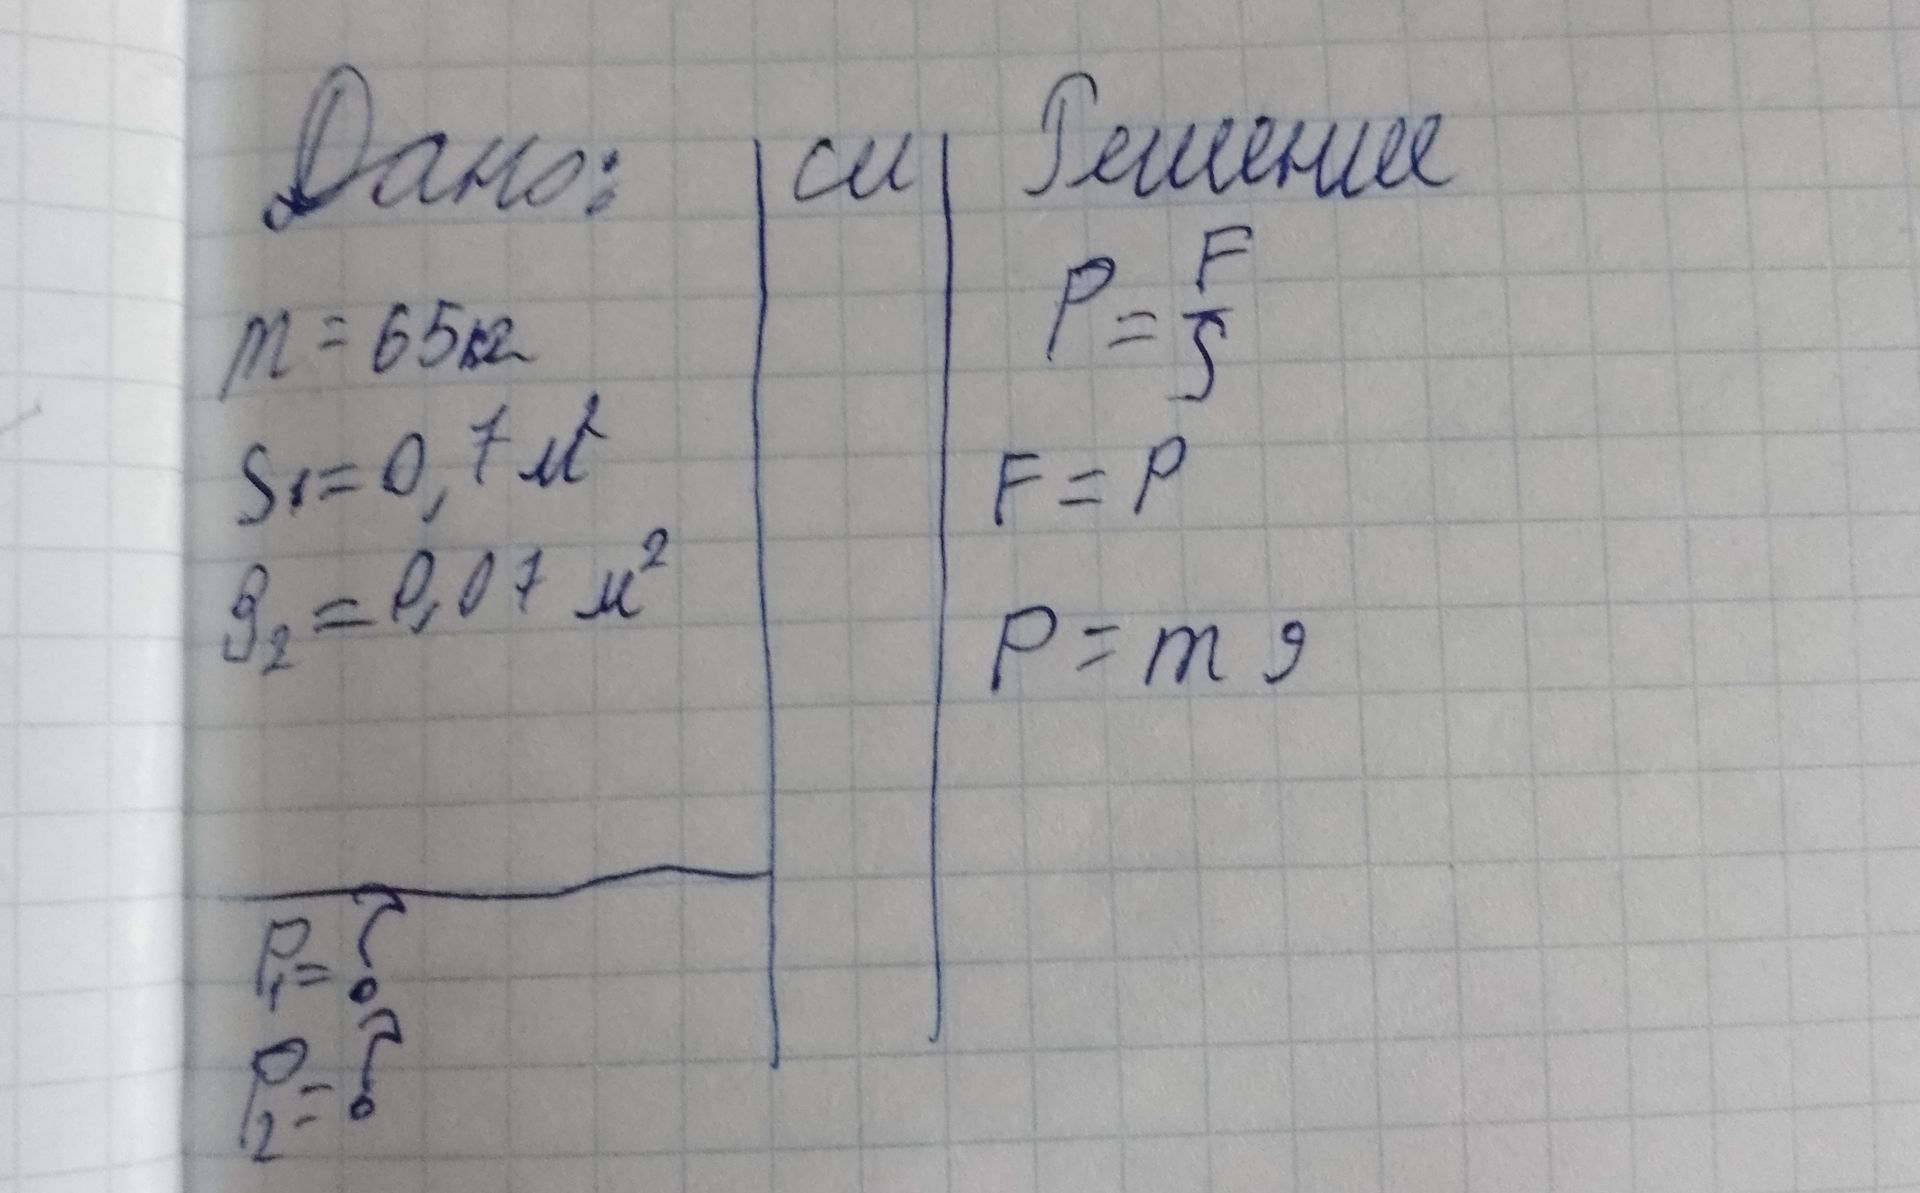 Дано:
m = 65кг
S₁ = 0,7 м²
S₂ = 0,07 м²
P₁ = ?
P₂ = ?
си
Решение
P = F/S
F = P
P = m g